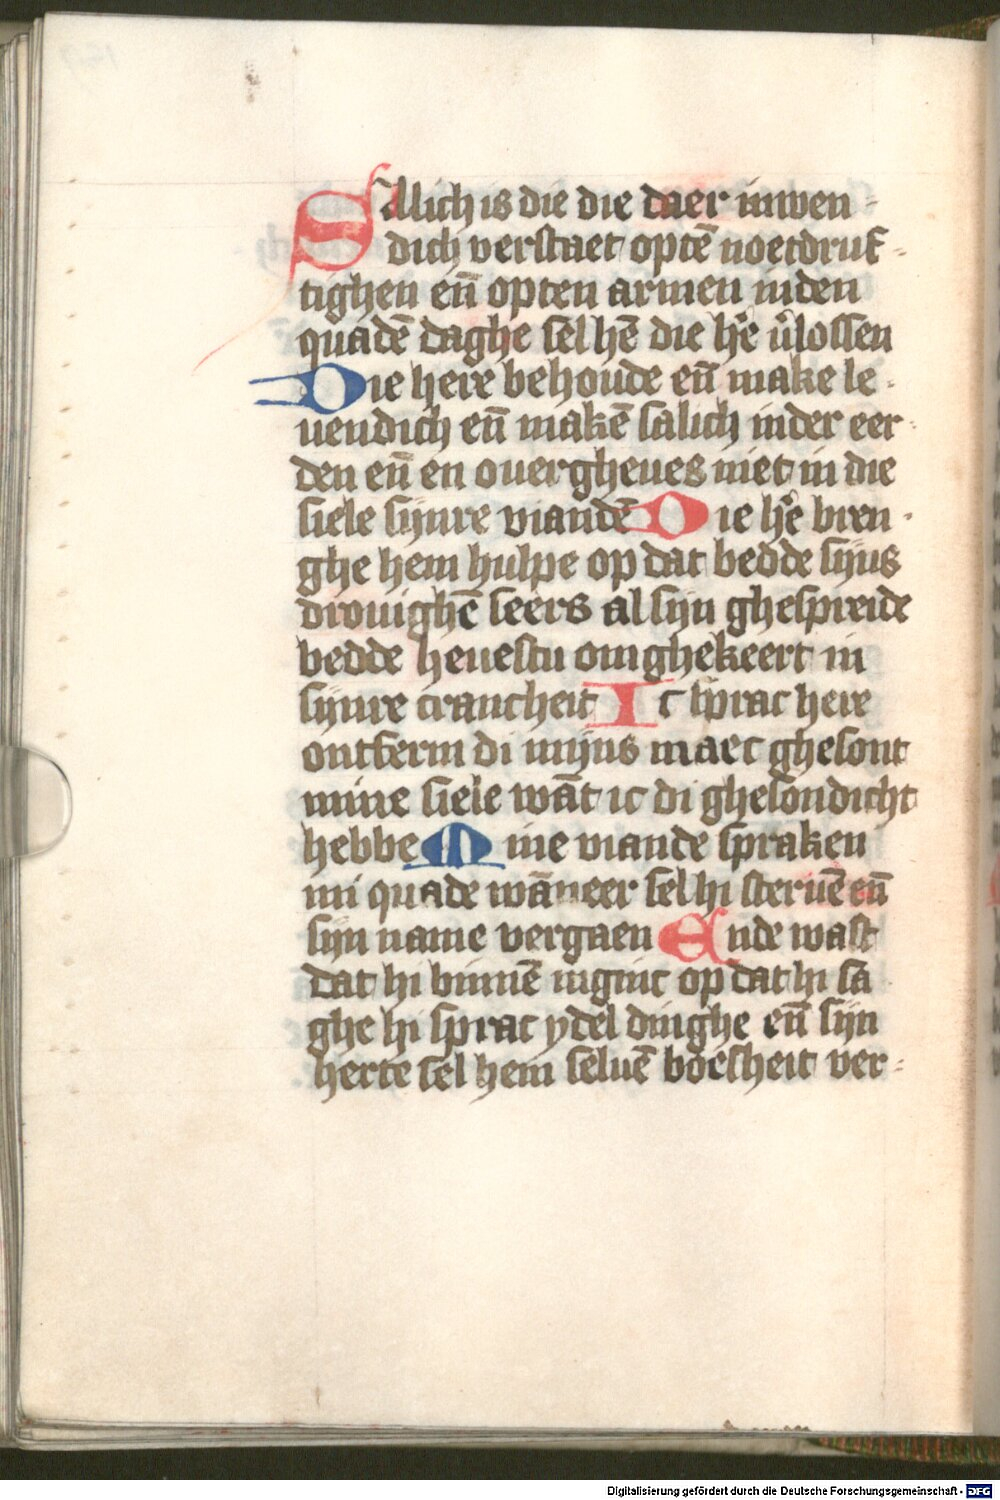 Sallich is die die daer inwen-
dich verstaet optē noetdruf-
tighen en̄ opten armen inden
quadē daghe sel hē die hͤe v̉lossen
Die here behoude en̄ make le-
uendich en̄ makē salich inder eer-
den en̄ en ouergheues niet in die
siele sijnre viandē Die hͤe bren-
ghe hem hulpe op dat bedde sijns
drouighē seers al sijn ghespreide
bedde heuestu omghekeert in
sijnre crancheit Ic sprac here
ontferm di mijns maec ghesont
mine siele wāt ic di ghesondicht
hebbe Mine viande spraken
mi quade wāneer sel hi steruē en̄
sijn name vergaen Ende wast
dat hi binnē inginc op dat hi sa
ghe hi sprac ydel dinghe en̄ sijn
herte sel hem seluē boesheit ver-
Digitalisierung gefördert durch die Deutsche Forschungsgemeinschaft - DFG